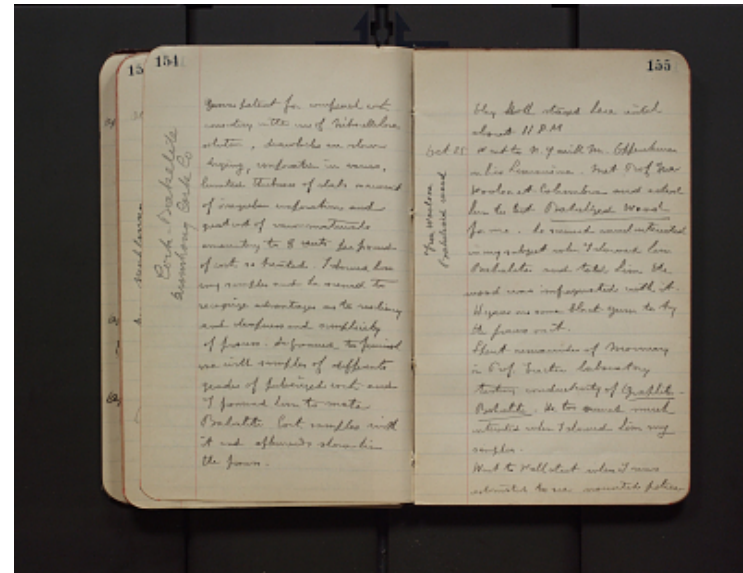 154
Cork-Bakelite
Armstrong Cork Co
patent for compound cork
consisting in the use of Nitrocellulose
solution, drawbacks are slow
drying, evaporation in
limited thickness of slabs
of irregular evaporation and
great cost of raw materials
amounting to 8 cents per pound
of cork so treated. I showed him
my samples and he seemed to
recognize advantages as to resiliency
and cheapness and simplicity
of process. He promised to furnish
me with samples of different
grades of pulverized cork and
I promised him to make
Bakelite Cork samples with
it and afterwards show him
the process.
155
stayed here until
about 11 P.M
Oct 25
Bakelized wood
Went to N.Y. with Mr.
in his Limousine. Met Prof
at Columbia and asked
him to test Bakelized Wood
for me. He seemed much interested
in my subject when I showed him
Bakelite and told him the
wood was impregnated with it.
some black gum to try
the process on it.
Spent remainder of Morning
in Prof. laboratory
testing conductivity of Graphite-
Bakelite. He too seemed much
interested when I showed him my
samples.
Went to Wall street where I was
astonished to see mounted police